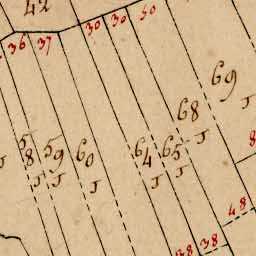 42
36 37 30 30 50
69
J
68
J
58 59 60 64 65
J J J J J J
8
48
38 38